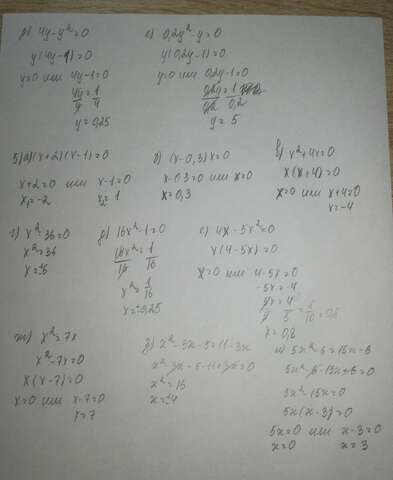 д) 4y-y²=0
y(4y-1)=0
y=0 или 4y-1=0
4y/4=1/4
y=0,25
е) 0,2y²-y=0
y(0,2y-1)=0
y=0 или 0,2y-1=0
0,2y/0,2=1/0,2
y=5
5)а)(x+2)(x-1)=0
x+2=0 или x-1=0
x₁=-2 x₂=1
б) (x-0,3)x=0
x-0,3=0 или x=0
x=0,3
в) x²+4x=0
x(x+4)=0
x=0 или x+4=0
x=-4
г) x²-36=0
x²=36
x=±6
д) 16x²-1=0
16x²/16=1/16
x²=1/16
x=±0,25
е) 4x-5x²=0
x(4-5x)=0
x=0 или 4-5x=0
-5x=-4
x=0,8
ж) x²=7x
x²-7x=0
x(x-7)=0
x=0 или x-7=0
x=7
з) x²-3x-5=11-3x
x²-3x-5-11+3x=0
x²=16
x=±4
и) 5x²-6=15x-6
5x²-6-15x+6=0
5x²-15x=0
5x(x-3)=0
5x=0 или x-3=0
x=0 x=3